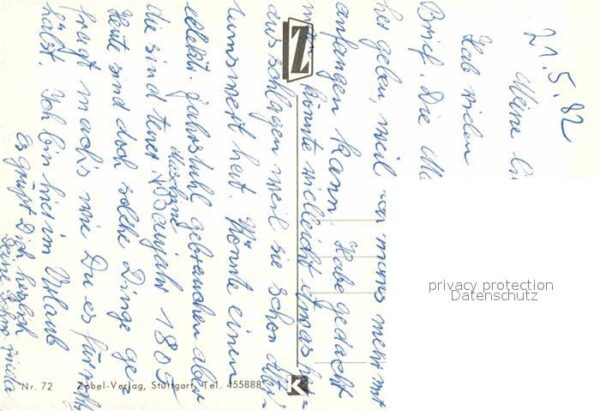 21.5.82
Meine
Hab vielen
Brief. Die
her geben, weil man nichts mehr mit
anfangen kann. Habe gedacht
man könnte vielleicht etwas
ausschlagen weil sie schon
wert hat. Könnte einen
elektr. Fahrstuhl gebrauchen aber
die sind teuer
Maschine
Baujahr 180
Heute sind doch solche Dinge ge-
fragt mach's wie Du es für richtig
hälst. Ich bin hier im Urlaub
Es grüßt Dich herzlich
Deine
Nr. 72 Zobel-Verlag, Stuttgart, Tel. 455888
Z
K
privacy protection
Datenschutz